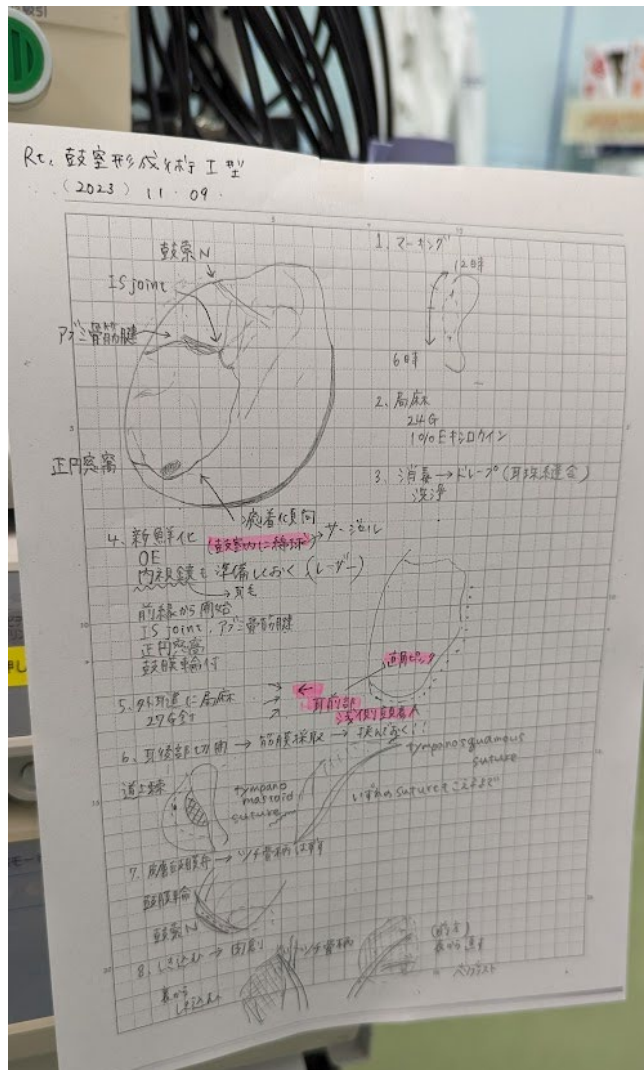 Rt. 鼓室形成術 I型
(2023) 11.09.
鼓索N
IS joint
アブミ骨筋腱
正円窓窩
癒着傾向
1. マーキング
12時
6時
2. 局麻
24G
1%Eキシロカイン
3. 消毒→ドレープ(耳珠縫合)
洗浄
4. 新鮮化
(鼓室内に綿球)
OE
内視鏡も準備しておく(レーザー)
耳毛
前縁から開始
IS joint, アブミ骨筋腱
正円窓窩
鼓膜輪付
5. 外耳道に局麻
27G針
耳前部
6. 耳後部切開→筋膜採取→
道上棘
tympano
mastoid
suture
tympanosquamous
suture
いずれのsutureもこえるまで
7. →ツチ骨柄はずす
鼓膜輪
鼓索N
8. しき込む→閉創
ツチ骨柄
裏から
しき込む